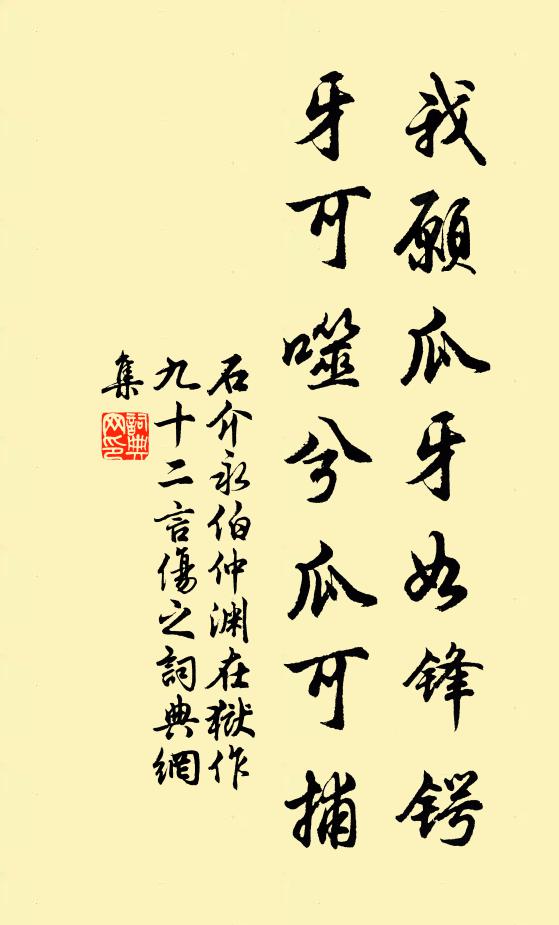 我願瓜牙如锋锷
牙可噬兮瓜可捕
石介永伯仲渊在獄作
九十二言傷之詞典網
集
詞典
网印